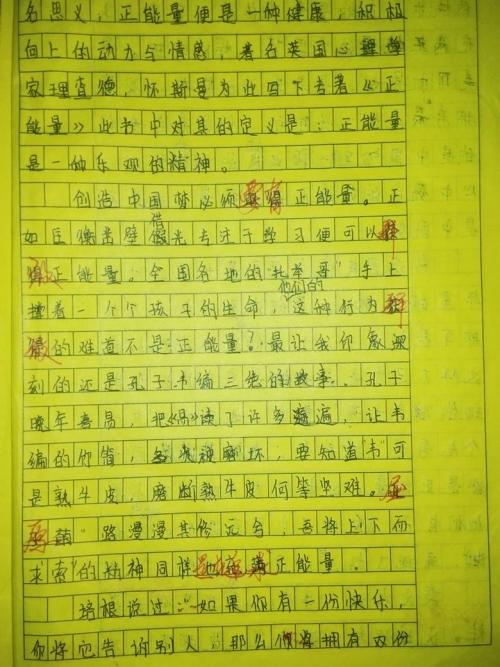 名思义，正能量便是一种健康，积极
向上的动力与情感，著名英国心理学
家理查德 怀斯曼为此写下专著《正
能量》此书中对其的定义是：正能量
是一种乐观的精神。
创造中国梦必须要有正能量。正
如匡衡凿壁借光专注于学习便可以释
放正能量。全国各地的"托举哥"手上
撑着一个个孩子的生命，他们的这种行为释
放的难道不是正能量？最让我印象深
刻的还是孔子韦编三绝的故事。孔子
晚年喜易，把读了许多遍，让韦
编的竹简，磨坏，要知道"韦"可
是熟牛皮，磨断熟牛皮何等坚难。屈
原"路漫漫其修远兮，吾将上下而
求索"的精神同样正能量。
培根说过："如果你有一份快乐，
你将它告诉别人，那么你将拥有两份